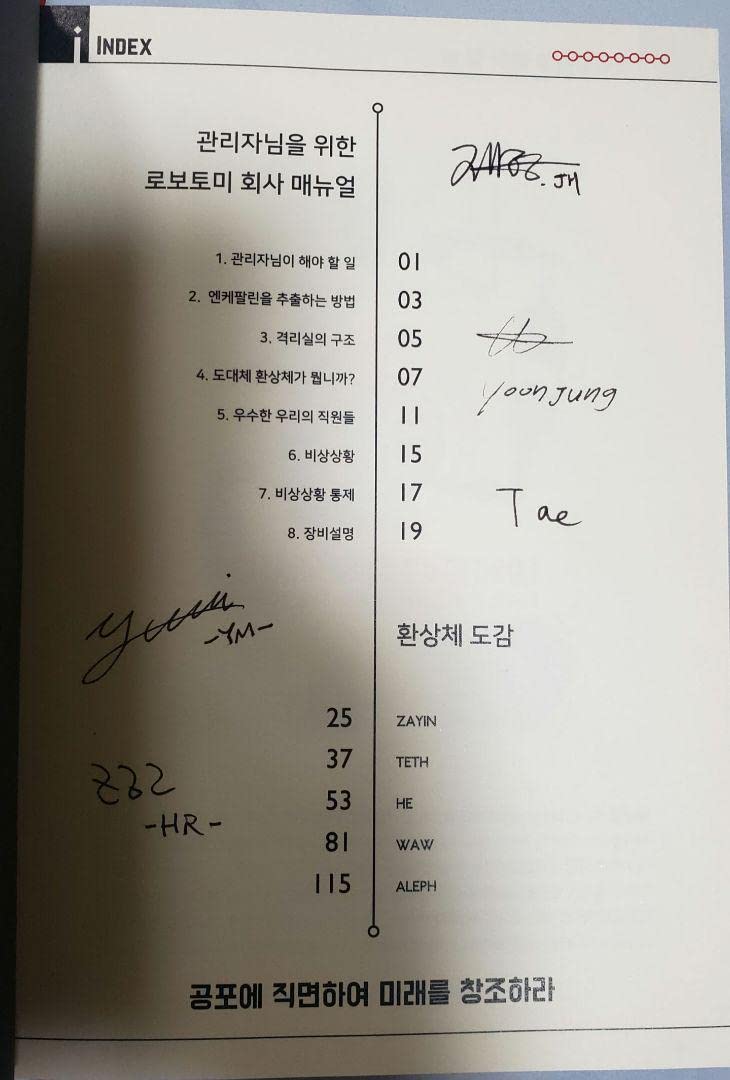 i INDEX
관리자님을 위한
로보토미 회사 매뉴얼
1. 관리자님이 해야 할 일 01
2. 엔케팔린을 추출하는 방법 03
3. 격리실의 구조 05
4. 도대체 환상체가 뭡니까? 07
5. 우수한 우리의 직원들 11
6. 비상상황 15
7. 비상상황 통제 17
8. 장비설명 19
JH
Yoonjung
Tae
yumi
-YM-
-HR-
환상체 도감
25 ZAYIN
37 TETH
53 HE
81 WAW
115 ALEPH
공포에 직면하여 미래를 창조하라